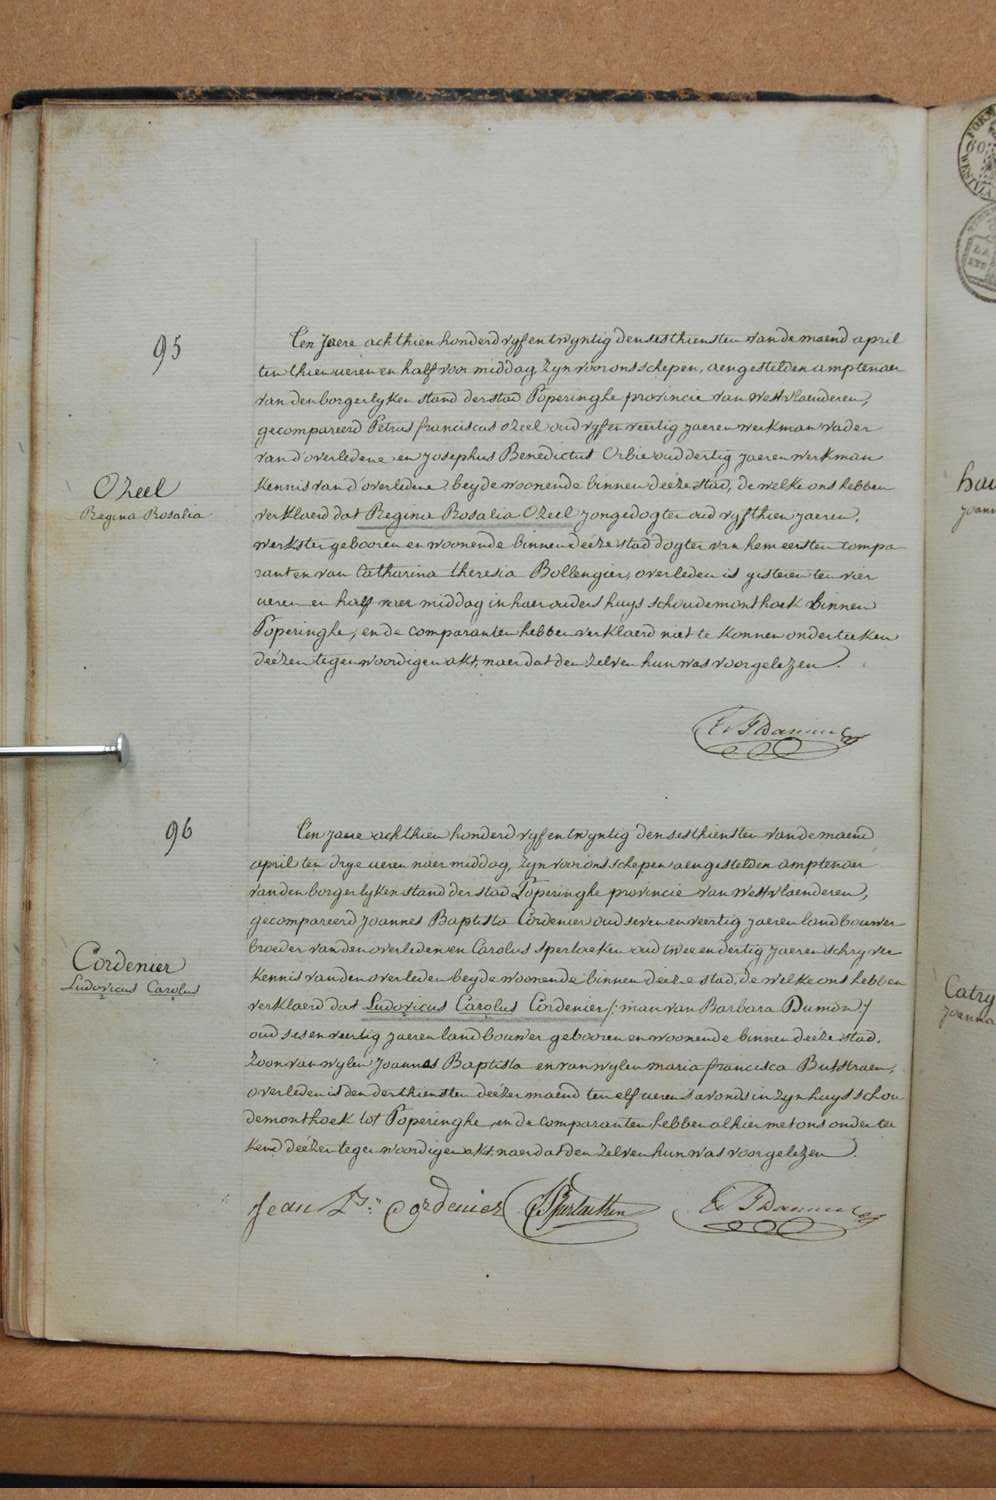 95
Ozeel
Regina Rosalia
Ten Jaere achthien honderd vyfentwyntig den sesthiensten van de maend april
ten thien ueren en half voor middag, Zyn voor ons schepen, aengestelden amptenaer
van den borgerlyken stand der stad Poperinghe provincie van Westvlaenderen,
gecompareerd Petrus franciscus ozeel oud vyfenveertig jaeren werkman vader
van d'overledene en Josephus Benedictus Orbie oud dertig jaeren werkman
kennis van d'overledene beyde woonende binnen deéze stad, de welke ons hebben
verklaerd dat Regina Rosalia Ozeel jongedogter oud vyfthien jaeren,
werkster gebooren en woonende binnen deéze stad dogter van hem eersten compa
rant en van Catharina theresia Bollengier, overleden is gisteren ten vier
ueren en half naer middag in haer ouders huys schoudemonthoek binnen
Poperinghe, en de comparanten hebben verklaerd niet te konnen onderteeken
deézen tegenwoordigen akt, naer dat den zelven hun was voorgelezen.
96
Cordenier
Ludovicus Carolus
Ten jaere achthien honderd vyfentwyntig den sesthiensten van de maend
april ten drye ueren naer middag, Zyn voor ons schepen aengestelden amptenaer
van den borgerlyken stand der stad Poperinghe provincie van Westvlaenderen,
gecompareerd Joannes Baptista Cordenier oud seven en veertig jaeren landbouwer
broeder van den overledenen Carolus sperlaeken oud twee en dertig jaeren schryver
kennis van den overleden beyde woonende binnen deeze stad, de welke ons hebben
verklaerd dat Ludovicus Carolus Cordenier /: man van Barbara Dumon :/
oud ses en veertig jaeren landbouwer gebooren en woonende binnen deeze stad.
Zoon van wylen Joannes Baptista en van wylen maria francisca Busstraen,
overleden is den derthiensten deézer maend ten elf ueren s'avonds in zyn huys schou
demonthoek tot Poperinghe, en de comparanten hebben alhier met ons onder te
kend deézen tegenwoordigen akt, naer dat den zelven hun was voorgelezen.
Jean Bte Cordenier